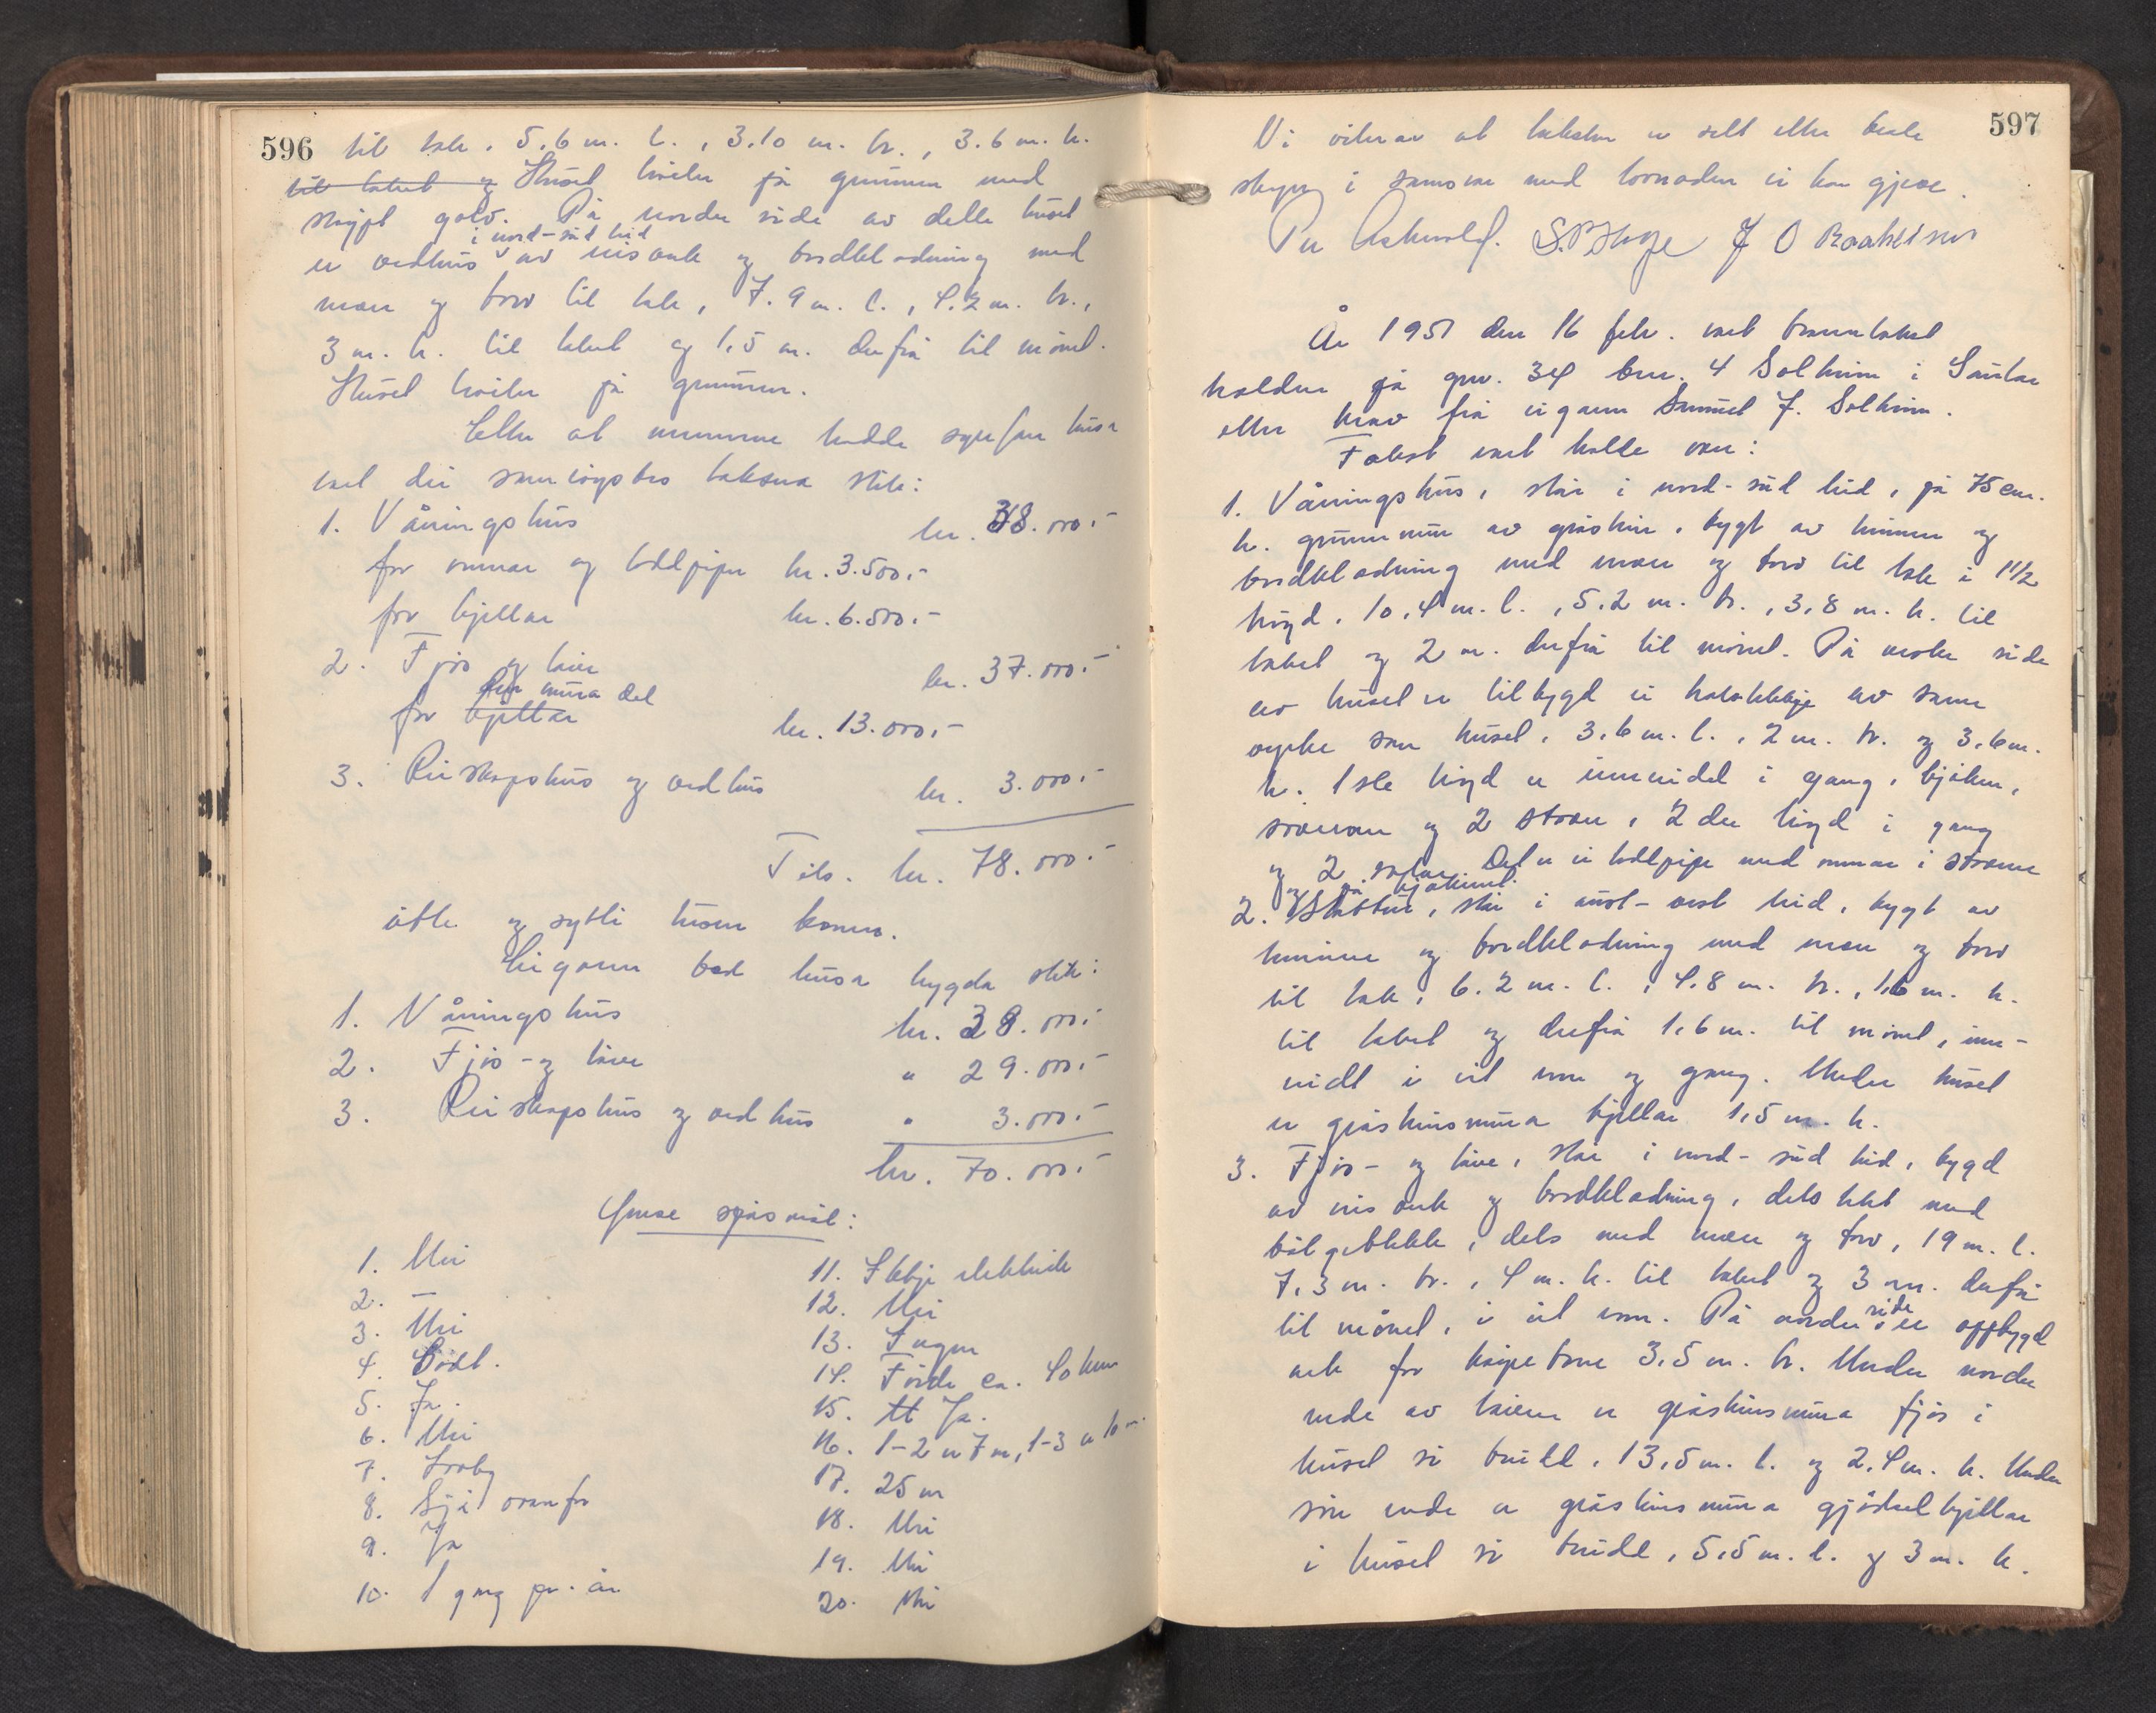 596
til tak, 5.6 m. l., 3.10 m. br., 3.6 m. h.
til taket og Huset kviler på grunnen med
støypt golv. På nordre side av dette huset
er vedhus i nord-sud leid av reisverk og bordkledning med
never og torv til tak, 7.9 m. l., 4.2 m. br.,
3 m. h. til taket og 1,5 m. derfrå til mønet.
Huset kviler på grunnen.
Etter at mennene hadde synfare husa
vart dei samrøystes taksera slik:
1. Våningshus kr. 38.000.-
for omnar og eldpipe kr. 3.500.-
for kjellar kr. 6.500.-
2. Fjøs og løe kr. 37.000.-
for kjellar mura del kr. 13.000.-
3. Reiskapshus og vedhus kr. 3.000.-
Tils. kr. 78.000.-
åtte og sytti tusen kroner.
Eigaren bad husa trygda slik:
1. Våningshus kr. 38.000.-
2. Fjøs- og løe " 29.000.-
3. Reiskapshus og vedhus " 3.000.-
kr. 70.000.-
Ymse spørsmål:
1. Nei
2. —
3. Nei
4. Godt.
5. Ja.
6. Nei
7.
8. Sjå ovanfor
9. Ja
10. 1 gang pr. år
11. Ikkje elektrisk
12. Nei
13. Ingen
14. Førde ca. 40 km
15. Ja.
16. 1-2 er 7 m, 1-3 er 10 m
17. 25 m
18. Nei
19. Nei
20. Nei
597
Vi vitnar at taksten er sett etter beste
skyn og i samsvar med loven den vi kan gjeve.
Per S. P. Hage J O
År 1951 den 16 febr. vart branntakst
halden på gnr. 34 bnr. 4 Solheim i
etter krav frå eigaren Samuel J. Solheim.
Takst vart halde over:
1. Våningshus, står i nord-sud leid, på 75 cm.
h. grunnmur av gråstein, bygt av timmer og
bordkledning med never og torv til tak i 1 1/2
høgd, 10,4 m. l., 5.2 m. br., 3,8 m. h. til
taket og 2 m. derfrå til mønet. På vestre side
av huset er tilbygd ei av same
som huset, 3,6 m. l., 2 m. br. og 3,6 m.
h. 1ste høgd er innreidd i gang, kjøken,
og 2 stover, 2dre høgd i gang
og 2 Det er ei eldpipe med omnar i stovene
og på kjøkenet.
2. står i aust-vest leid, bygt av
timmer og bordkledning med never og torv
til tak, 6.2 m. l., 4.8 m. br., 1,6 m. h.
til taket og derfrå 1,6 m. til mønet, inn-
reidt i eit rom og gang. Under huset
er gråsteinsmura kjellar 1,5 m. h.
3. Fjøs- og løe, står i nord-sud leid, bygd
av reisverk og bordkledning, dels tekt med
bølgeblekk, dels med never og torv, 19 m. l.
7,3 m. br., 4 m. h. til taket og 3 m. derfrå
til mønet, i eit rom. På nordre side er oppbygd
ark for køyrebrue 3,5 m. br. Under nordre
ende av løa er gråsteinsmura fjøs i
huset si breidd, 13,5 m. l. og 2,4 m. h. Under
søre ende er gråsteinsmura gjødselkjellar
i huset si breidd, 5,5 m. l. og 3 m. h.